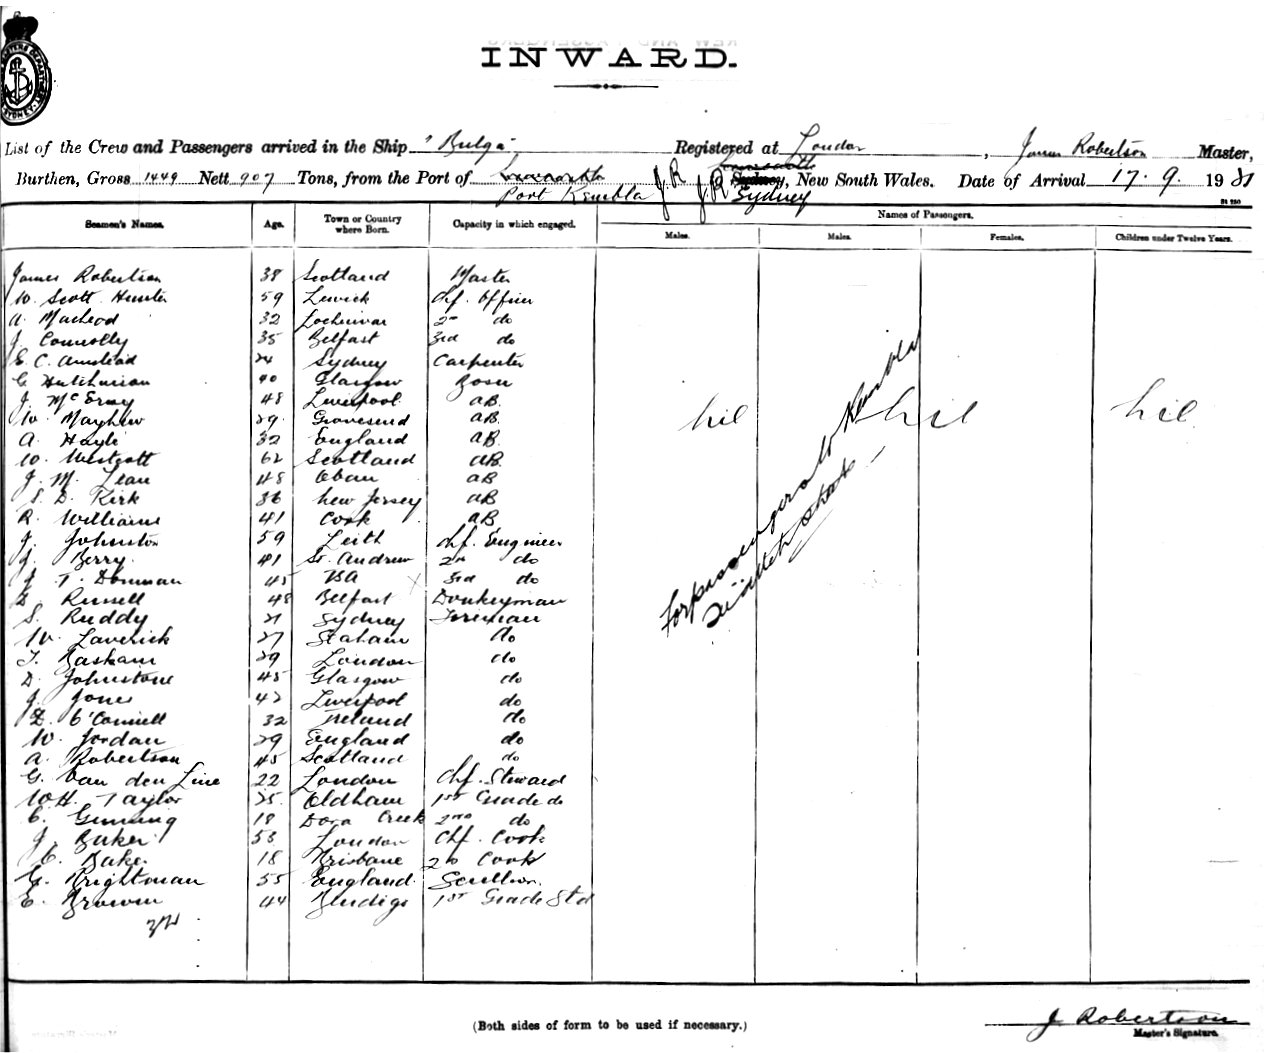 INWARD.
List of the Crew and Passengers arrived in the Ship "Bulga" Registered at London, James Robertson Master,
Burthen, Gross 1449 Nett 907 Tons, from the Port of Port Kembla J.R J.R Sydney Sydney, New South Wales. Date of Arrival 17.9. 19
Seamen's Names. Age. Town or Country where Born. Capacity in which engaged. Names of Passengers.
Males. Males. Females. Children under Twelve Years.
James Robertson 38 Scotland Master
W. Scott Hunter 59 Lerwick Chf. Officer
A. Macleod 32 Lochinvar 2nd do
J. Connolly 35 Belfast 3rd do
E C. Armstead 24 Sydney Carpenter
G Hutchinson 40 Glasgow Bosn
J. McEroy 48 Liverpool AB.
W. Mayhew 29 Gravesend AB.
A. Hayle 32 England AB.
W. Westcott 62 Scotland AB.
J. M. Lean 48 Oban AB
S. D. Kirk 36 New Jersey AB
R. Williams 41 Cook AB
J. Johnston 59 Leith Chf. Engineer
J. Berry 41 St. Andrew 2nd do
J T. Donman 45 3rd do
D. Russell 48 Belfast Donkeyman
S. Ruddy 21 Sydney Fireman
W. Laverick 27 Seaham do
T. Basham 29 London do
D. Johnstone 45 Glasgow do
J. Jones 42 Liverpool do
D. O'Connell 32 Ireland do
W. Jordan 29 England do
A. Robertson 45 Scotland do
G. Van den Line 22 London Chf. Steward
W.H. Taylor 25 Oldham 1st Grade do
C. Gunning 18 Dora Creek 2nd do
J. Baker 53 London Chf. Cook
C. Baker 18 Brisbane 2nd Cook
G. Brightman 55 England Scullion
E. Brown 44 Bendigo 1st Grade Std
32
nil nil nil
For passengers to Kembla
attch sheet
(Both sides of form to be used if necessary.)
J. Robertson
Master's Signature.